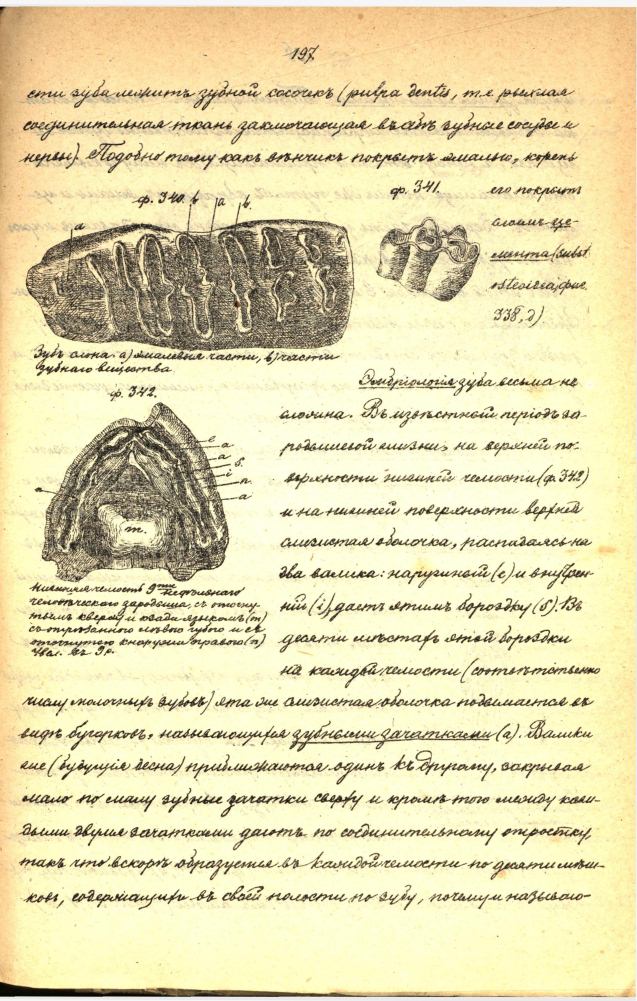 197
сти зуба лежитъ зубной сосочекъ (pulpa dentis, т.е. рыхлая
соединительная ткань заключающая въ себѣ зубные сосуды и
нервы). Подобно тому какъ вѣнчикъ покрытъ эмалью, корень
его покрытъ
слоемъ це-
мента (subst.
osteoidea, фиг.
338, д)
ф. 340. b a b.
a
ф. 341.
Зубъ слона: а) эмалевыя части, в) части
зубнаго вещества.
ф. 342.
e
a
a
б.
i
n.
a
a
m.
Нижняя челюсть 9ти недѣльнаго
человѣческаго зародыша, съ отогну-
тымъ кверху и кзади языкомъ (m)
съ отрѣзанною лѣвою губою и съ
отогнутою кнаружи правою (n)
Увел. въ 9 р.
Эмбріологія зуба весьма не
сложна. Въ извѣстный періодъ за-
родышевой жизни, на верхней по-
верхности нижней челюсти (ф. 342)
и на нижней поверхности верхней
слизистая оболочка, распадаясь на
два валика: наружный (e) и внутрен-
ній (i), даетъ этимъ бороздку (б). Въ
десяти мѣстахъ этой бороздки
на каждой челюсти (соотвѣтственно
числу молочныхъ зубовъ) эта же слизистая оболочка подымается въ
видѣ бугорковъ, называющихся зубными зачатками (a). Валики
же (будущія десна) приближаются одинъ къ другому, закрывая
мало по малу зубные зачатки сверху и кромѣ того между каж-
дыми двумя зачатками даютъ по соединительному отростку,
такъ что вскорѣ образуется въ каждой челюсти по десяти мѣш-
ковъ, содержащихъ въ своей полости по зубу, почему и называю-